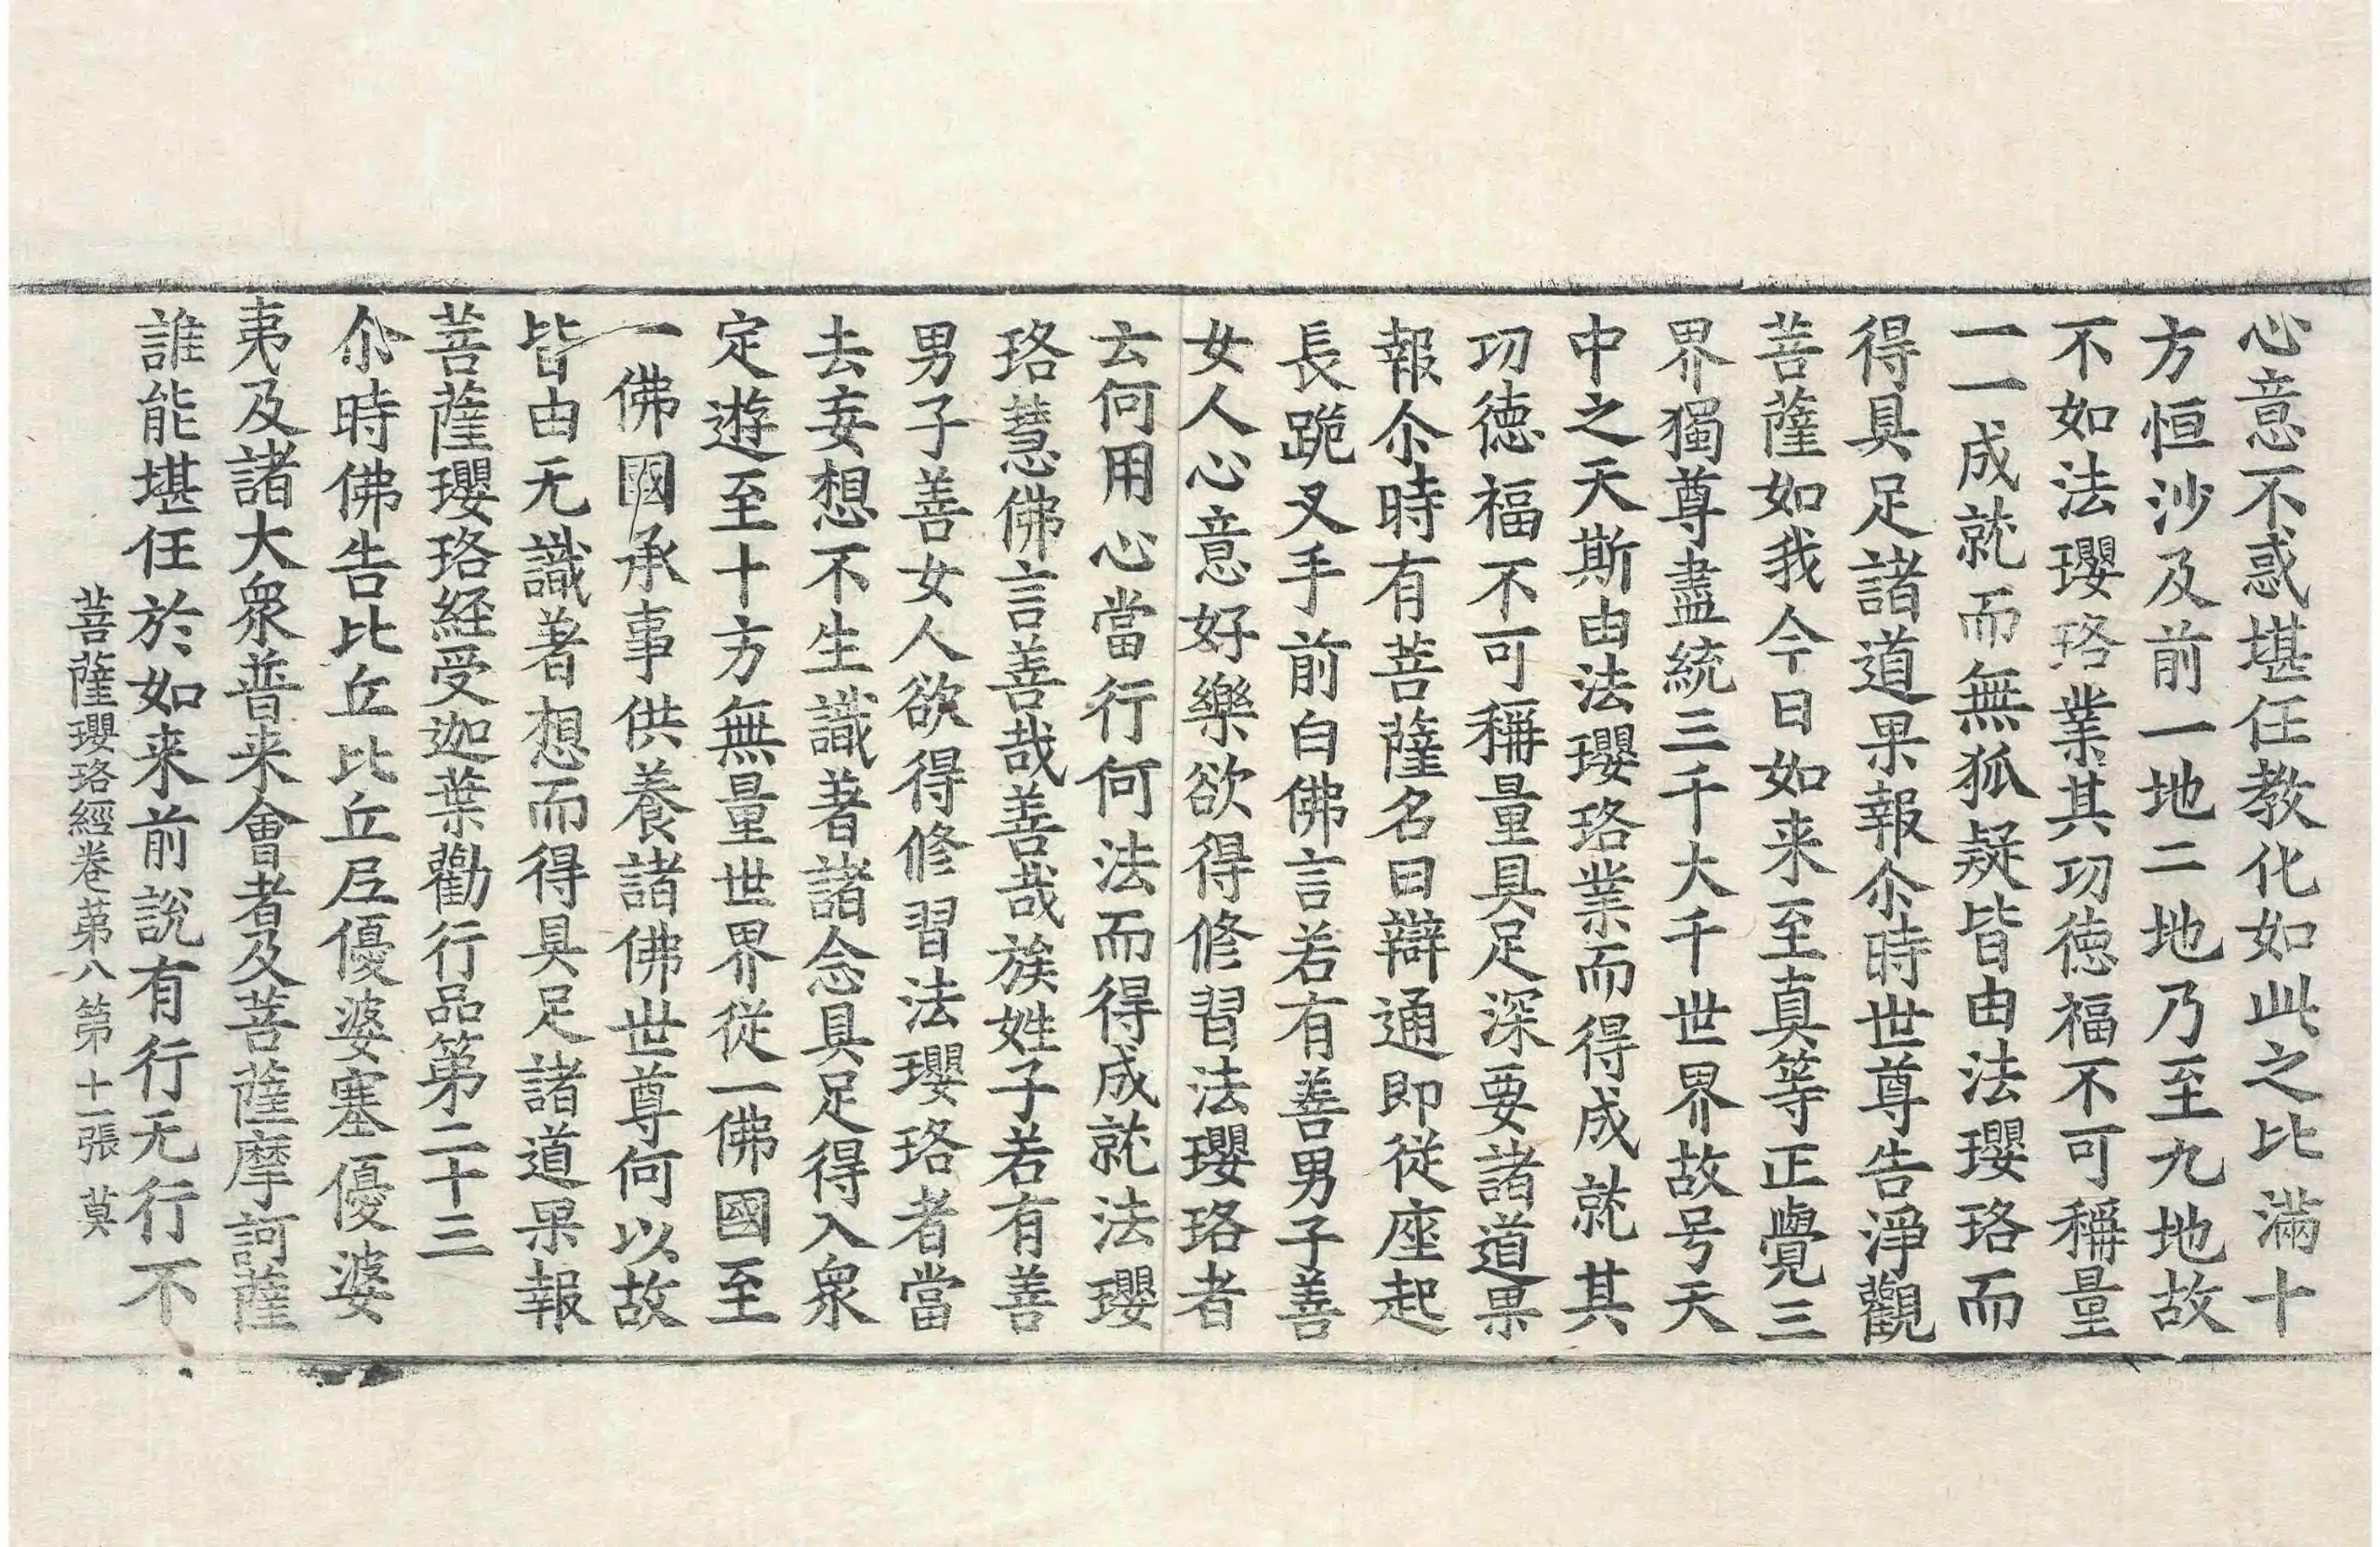 心意不惑堪任教化如此之比滿十
方恒沙及前一地二地乃至九地故
不如法瓔珞業其功徳福不可稱量
一一成就而無狐疑皆由法瓔珞而
得具足諸道果報尒時世尊告淨觀
菩薩如我今日如来至真等正覺三
界獨尊盡統三千大千世界故号天
中之天斯由法瓔珞業而得成就其
功徳福不可稱量具足深要諸道果
報尒時有菩薩名曰辯通即從座起
長跪叉手前白佛言若有善男子善
女人心意好樂欲得修習法瓔珞者
云何用心當行何法而得成就法瓔
珞慧佛言善哉善哉族姓子若有善
男子善女人欲得修習法瓔珞者當
去妄想不生識著諸念具足得入衆
定遊至十方無量世界從一佛國至
一佛國承事供養諸佛世尊何以故
皆由无識著想而得具足諸道果報
菩薩瓔珞経受迦葉勸行品第二十三
尒時佛告比丘比丘尼優婆塞優婆
夷及諸大衆普来會者及菩薩摩訶薩
誰能堪任於如来前說有行无行不
菩薩瓔珞經卷苐八 第十一張 莫